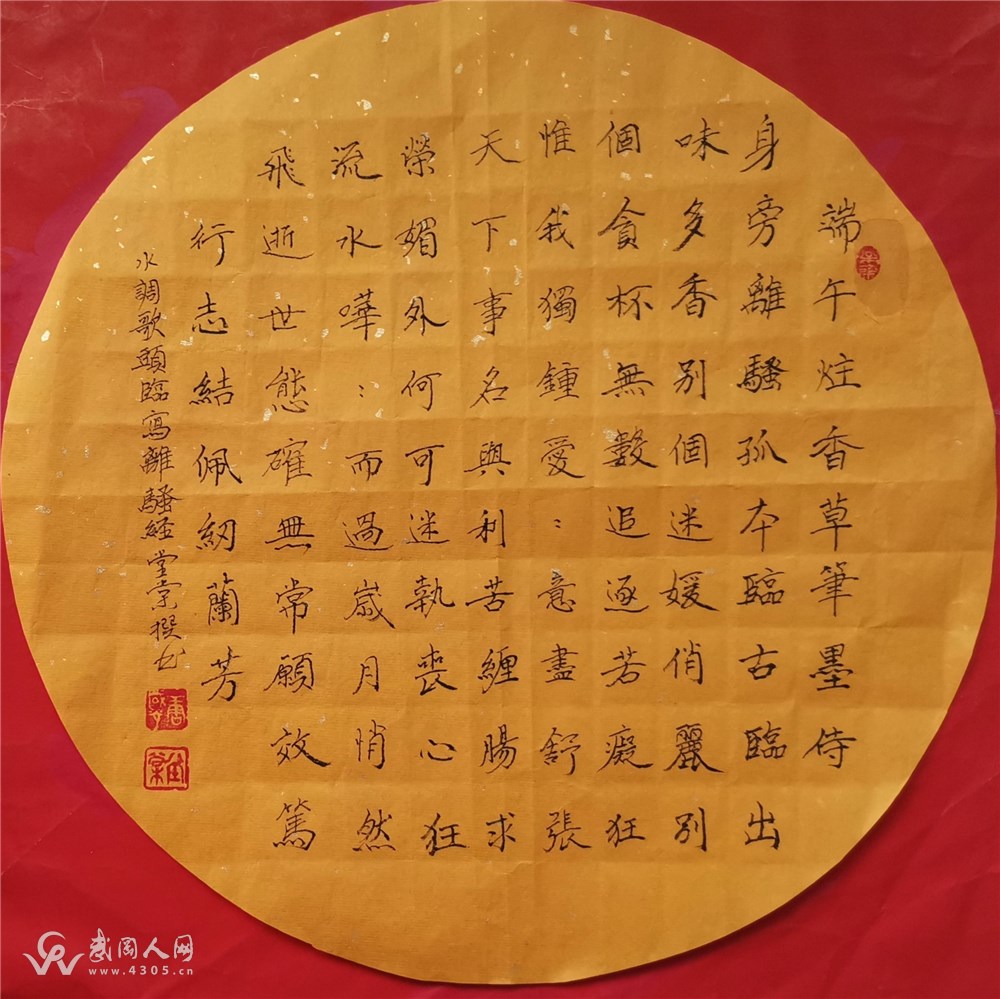 端午炷香草筆墨侍
身旁離騷孤本臨古臨出
味多香別個迷媛俏麗別
個貪杯無數追逐若癡狂
惟我獨鍾愛：意盡舒張
天下事名與利苦纏腸求
榮媚外何可迷執喪心狂
流水嘩：而過歲月悄然
飛逝世態確無常願效篤
行志結佩紉蘭芳
水調歌頭臨寫離騷経堂棠撰书
武冈人网
www.4305.cn